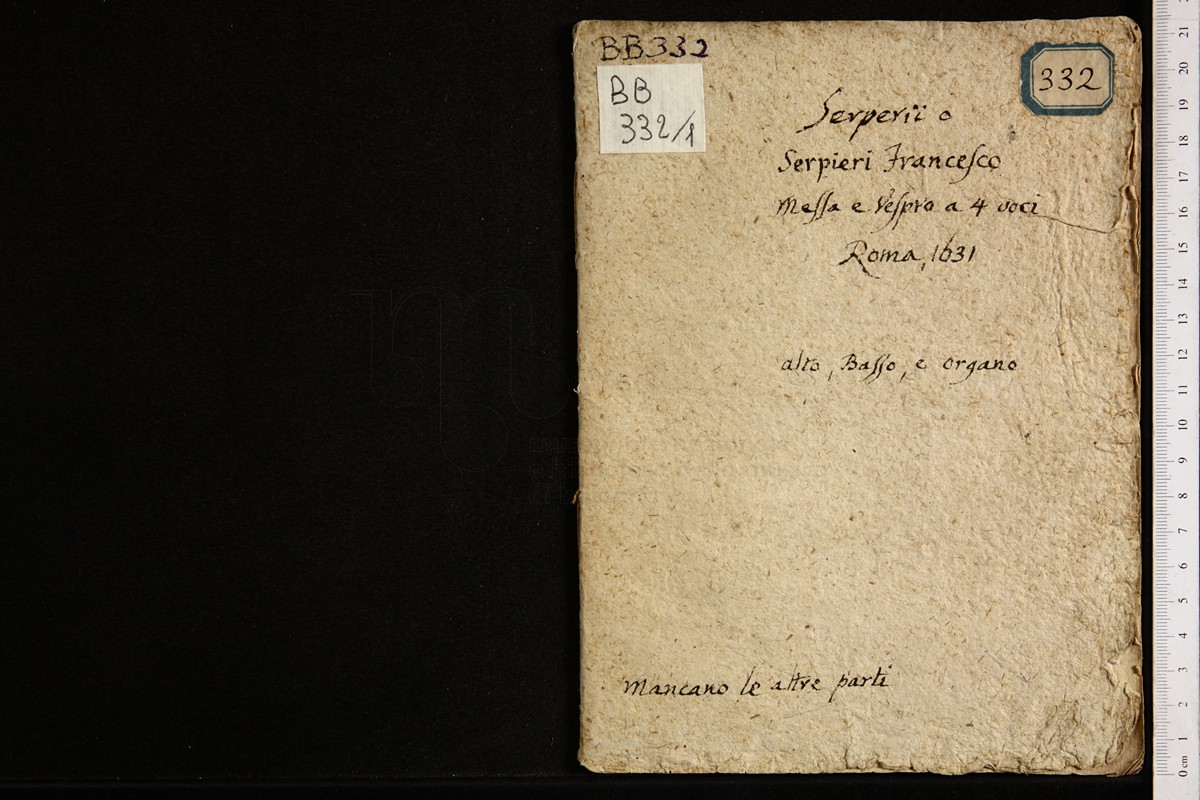 BB332
BB
332/1
332
Serperii o
Serpieri Francesco
Messa e Vespro a 4 voci
Roma, 1631
alto, Basso, e organo
Mancano le altre parti
21
20
19
18
17
16
15
14
13
12
11
10
9
8
7
6
5
4
3
2
1
0 cm